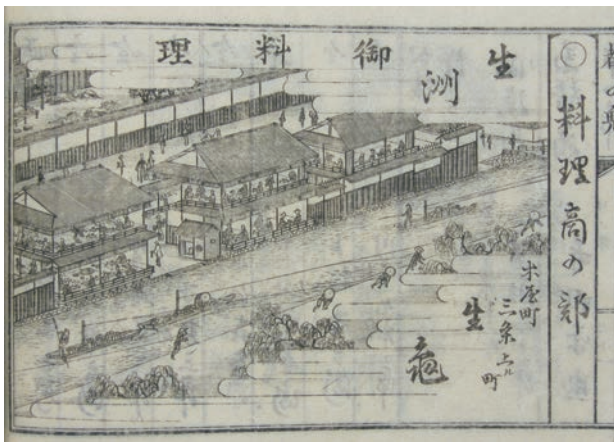 都の魁
料理商の部
生洲
御料理
木屋町
三条上ル町
生亀